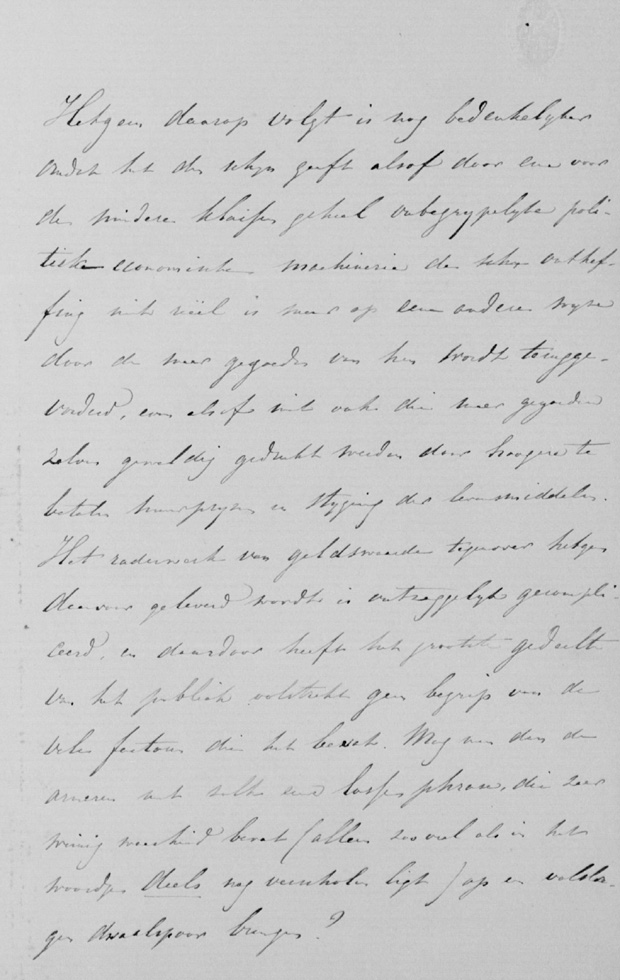 Hetgeen daarop volgt is nog bedenkelyker
omdat het den schyn geeft alsof door een voor
de mindere klasse geheel onbegrypelyke poli-
tisk economische machinerie de schr onthef-
fing niet reëel is maar op een andere wyze
door de meer gegoeden van hen wordt terugge-
vorderd, even alsof niet ook die meer gegoeden
zelven geweldig gedrukt werden door hoogere te
betalen huurpryzen en styging der levensmiddelen.
Het raderwerk van geldswaarde tegenover hetgeen
daarvoor geleverd wordt is ontzaggelyk gecompli-
ceerd, en daardoor heeft het grootste gedeelte
van het publiek volstrekt geen begrip van de
vele factoren die het bevat. Mag men dan de
armeren met zulke eene losse phrase, die zeer
weinig waarheid bevat (alleen zooveel als in het
woordje deels nog verscholen ligt) op een volsla-
gen dwaalspoor brengen?